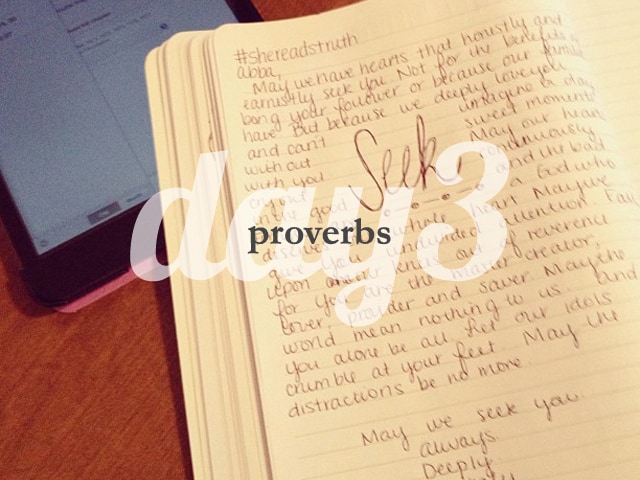 #shereadstruth
abba,
May we have hearts that honestly and
earnestly seek you Not for the benefits of
being your follower or because our families
have But because we deeply love you
and can't imagine a day
without sweet moments
with you May our hearts
Seek
continuously
in the good and the bad
a God who
whole heart May we
give you undivided attention Fall
upon our reverence
for you are the master creator,
lover, provider and saver May the
world mean nothing to us and
you alone be all. Let our idols
crumble at your feet May the
distractions be no more.
May we seek you
always.
Deeply
day 3
proverbs